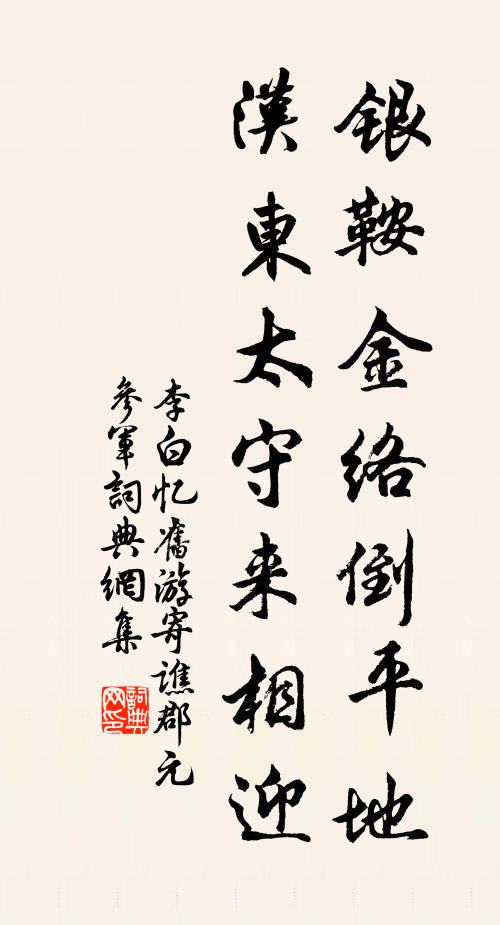 银鞍金络倒平地
漢東太守来相迎
李白忆舊游寄譙郡元
參軍詞典網集
詞典
网印